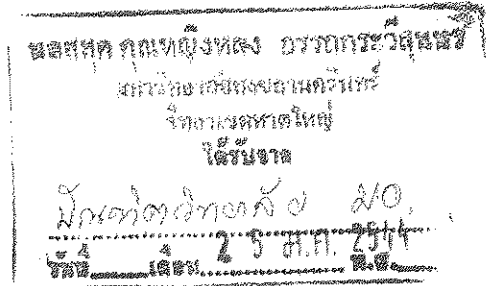 หอสมุด คุณหญิงหลง อรรถกระวีสุนทร
มหาวิทยาลัยสงขลานครินทร์
วิทยาเขตหาดใหญ่
ได้รับจาก
บัณฑิตวิทยาลัย มอ.
วันที่ เดือน 25 ต.ค. 2544 พ.ศ.